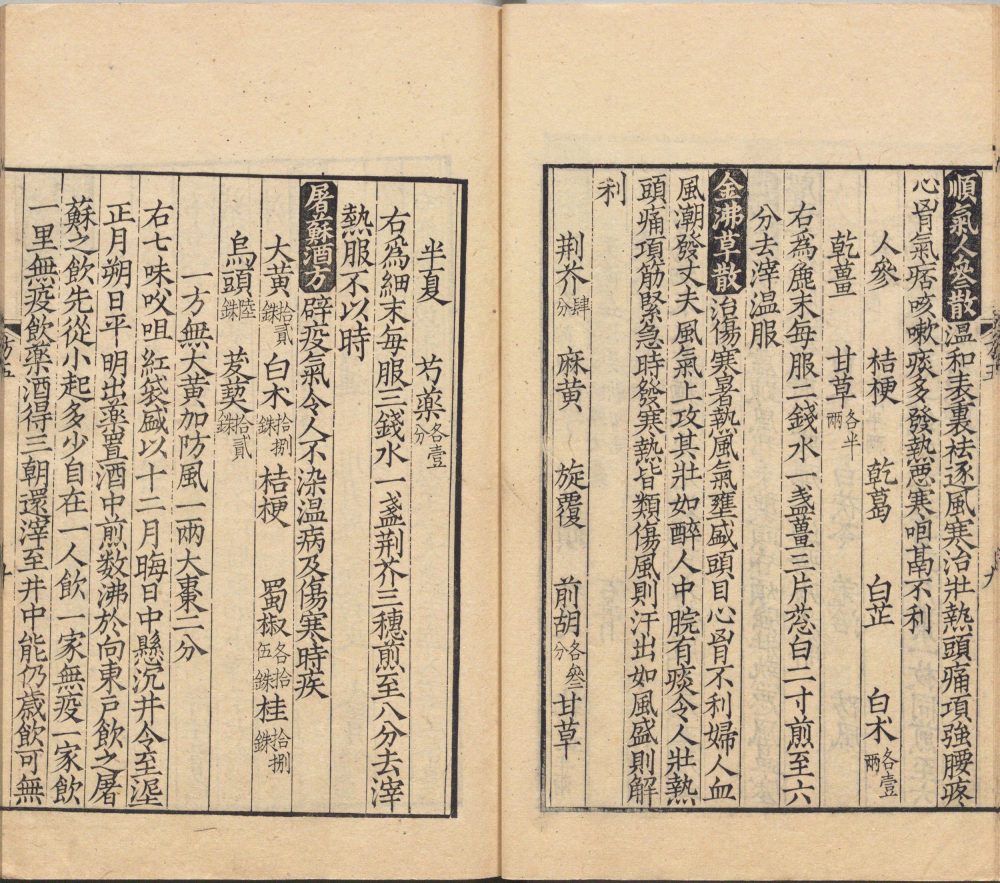 順氣人參散温和表裏祛逐風寒治壯熱頭痛項強腰疼
心胷氣痞咳嗽痰多發熱惡寒咽鬲不利
人參 桔梗 乾葛 白芷 白术各壹兩
乾薑 甘草各半兩
右為麄末每服二錢水一盞薑三片葱白二寸煎至六
分去滓温服
金沸草散治傷寒暑熱風氣壅盛頭目心胷不利婦人血
風潮發丈夫風氣上攻其壯如醉人中脘有痰令人壯熱
頭痛項筋緊急時發寒熱皆類傷風則汗出如風盛則解
利
荆芥肆分 麻黄 旋覆 前胡各叁分 甘草
半夏 芍藥各壹分
右爲細末每服三錢水一盞荆芥三穗煎至八分去滓
熱服不以時
屠蘇酒方辟疫氣令人不染温病及傷寒時疾
大黄拾貳銖 白木拾捌銖 桔梗 蜀椒各拾伍銖 桂拾捌銖
烏頭陸銖 菝葜拾貳銖
一方無大黄加防風一兩大棗二分
右七味㕮咀紅袋盛以十二月晦日中懸沉井令至埿
正月朔日平明出藥置酒中煎数沸於向東戸飲之屠
蘇之飲先從小起多少自在一人飲一家無疫一家飲
一里無疫飲藥酒得三朝還滓至井中能仍歳飲可無